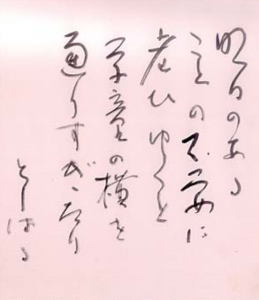 明日のある
の不安に
老ひゆくと
学童の横を
通りすぎたり
としはる